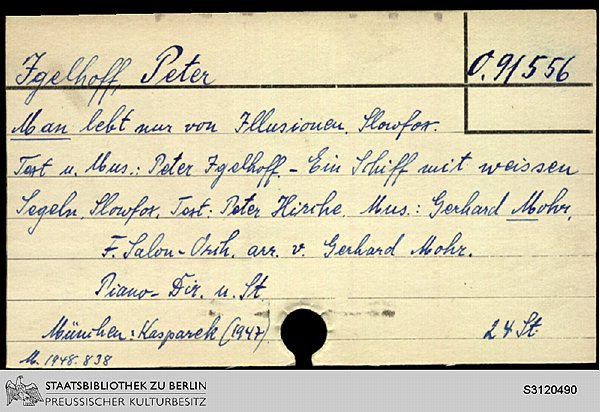 Igelhoff, Peter
O. 91556
Man lebt nur von Illusionen. Slowfox.
Text u. Mus.: Peter Igelhoff. - Ein Schiff mit weissen
Segeln. Slowfox. Text: Peter Hirche. Mus.: Gerhard Mohr.
F. Salon-Orch. arr. v. Gerhard Mohr.
Piano-Dir. u. St.
München: Kasparek (1947)
24 St.
M. 1948. 838
STAATSBIBLIOTHEK ZU BERLIN
PREUSSISCHER KULTURBESITZ
S3120490